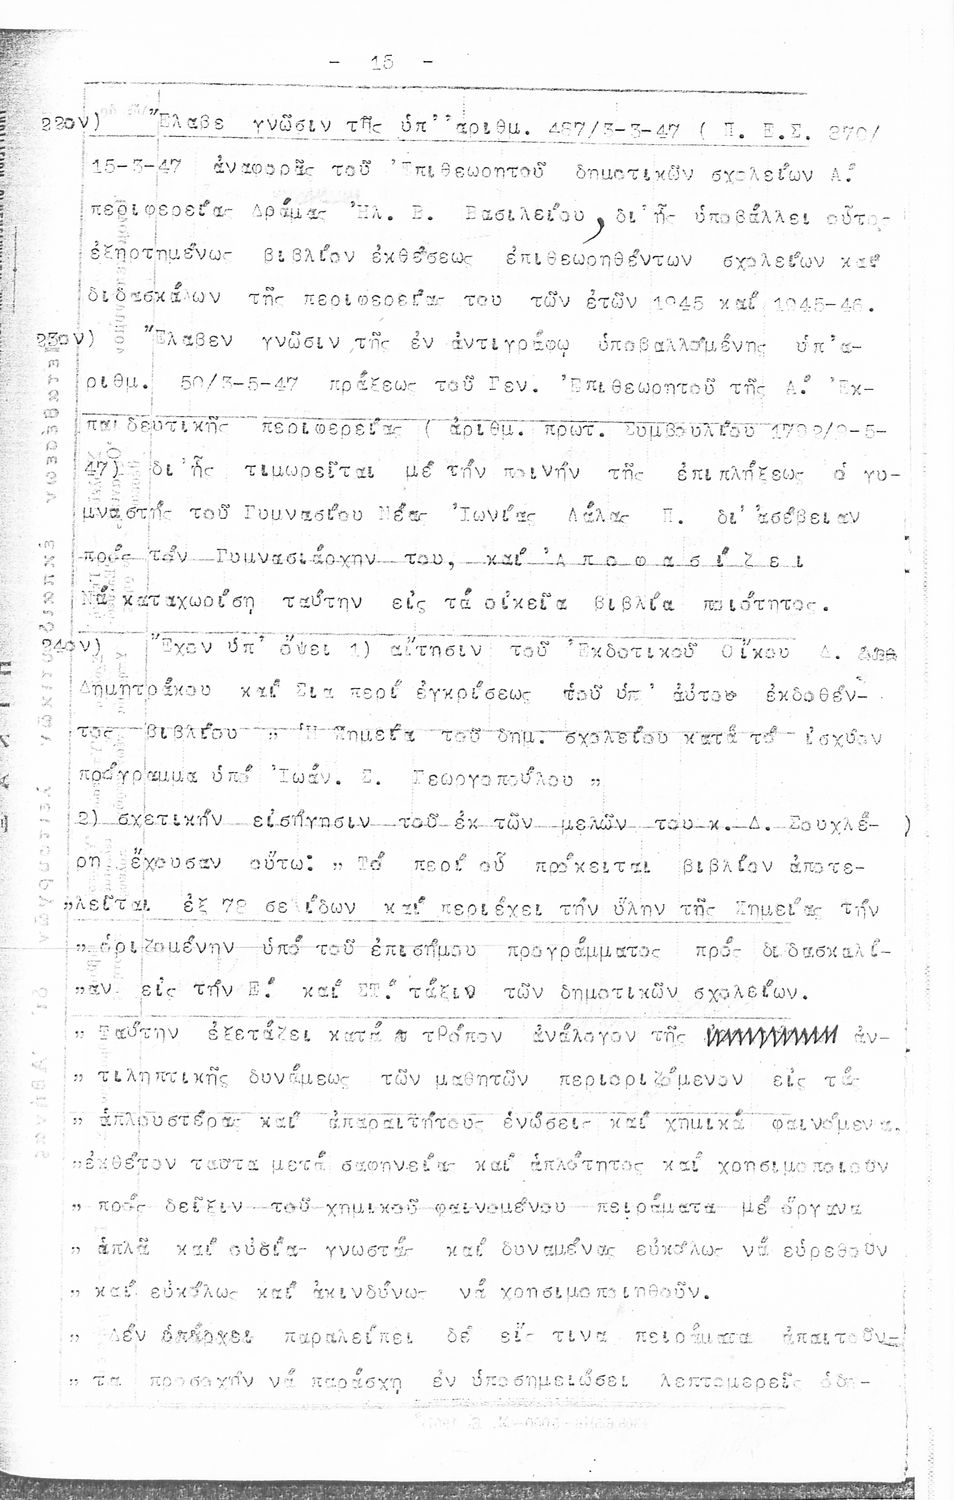 - 15 -
22ον) Ἔλαβε γνῶσιν τῆς ὑπ' ἀριθμ. 487/3-3-47 ( Π. Ε.Σ. 270/
15-3-47 ἀναφορᾶς τοῦ Ἐπιθεωρητοῦ δημοτικῶν σχολείων Α.΄
περιφερείας Δράμας Ἠλ. Β. Βασιλείου, δι' ἧς ὑποβάλλει οὗτος
ἐξηρτημένως βιβλίον ἐκθέσεως ἐπιθεωρηθέντων σχολείων καί
διδασκάλων τῆς περιφερείας του τῶν ἐτῶν 1945 καί 1945-46.
23ον) Ἔλαβεν γνῶσιν τῆς ἐν ἀντιγράφῳ ὑποβαλλομένης ὑπ' ἀ-
ριθμ. 50/3-5-47 πράξεως τοῦ Γεν. Ἐπιθεωρητοῦ τῆς Α.΄ Ἐκ-
παιδευτικῆς περιφερείας ( ἀριθμ. πρωτ. Συμβουλίου 1799/9-5-
47) δι' ἧς τιμωρεῖται μέ τήν ποινήν τῆς ἐπιπλήξεως ὁ γυ-
μναστής τοῦ Γυμνασίου Νέας Ἰωνίας Λάλας Π. δι' ἀσέβειαν
πρός τόν Γυμνασιάρχην του, καί Ἀ π ο φ α σ ί ζ ε ι
Νά καταχωρίση ταύτην εἰς τά οἰκεῖα βιβλία ποιότητος.
24ον) Ἔχον ὑπ' ὄψει 1) αἴτησιν τοῦ Ἐκδοτικοῦ Οἴκου Δ.
Δημητράκου καί Σια περί ἐγκρίσεως τοῦ ὑπ' αὐτου ἐκδοθέν-
τος βιβλίου „ Ἡ Χημεία τοῦ δημ. σχολείου κατά τό ἰσχῦον
πρόγραμμα ὑπό Ἰωάν. Σ. Γεωργοπούλου „
2) σχετικήν εἰσήγησιν τοῦ ἐκ τῶν μελῶν του κ. Δ. Σουχλέ- )
ρη ἔχουσαν οὕτω: „ Τό περί οὗ πρόκειται βιβλίον ἀποτε-
„λεῖται ἐξ 78 σελίδων καί περιέχει τήν ὕλην τῆς Χημείας τήν
„ ὁριζομένην ὑπό τοῦ ἐπισήμου προγράμματος πρός διδασκαλί-
„αν εἰς τήν Ε.΄ καί ΣΤ.΄ τάξιν τῶν δημοτικῶν σχολείων.
„ Ταύτην ἐξετάζει κατά τρόπον ἀνάλογον τῆς ἀν-
„ τιληπτικῆς δυνάμεως τῶν μαθητῶν περιοριζόμενον εἰς τάς
„ ἁπλουστέρας καί ἀπαραιτήτους ἑνώσεις καί χημικά φαινόμενα.
„ἐκθέτον ταυτα μετά σαφηνείας καί ἁπλότητος καί χρησιμοποιοῦν
„ πρός δεῖξιν τοῦ χημικοῦ φαινομένου πειράματα μέ ὄργανα
„ ἁπλᾶ καί οὐσίας γνωστάς καί δυναμένας εὐκόλως νά εὑρεθοῦν
„ καί εὐκόλως καί ἀκινδύνως νά χρησιμοποιηθοῦν.
„ Δέν ὑπάρχει παραλείπει δέ εἴς τινα πειράματα ἀπαιτοῦν-
„ τα προσοχήν νά παράσχη ἐν ὑποσημειώσει λεπτομερεῖς ὁδη-